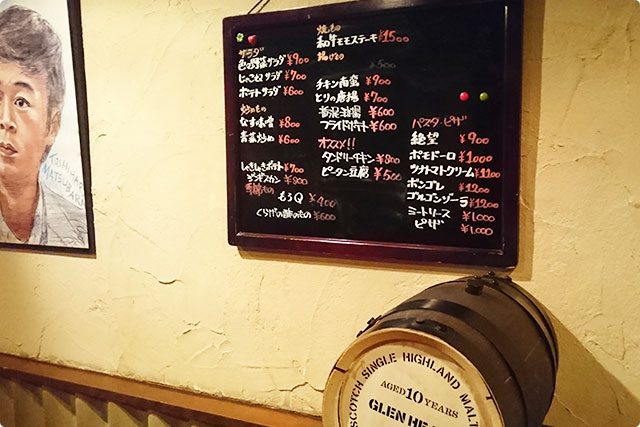 サラダ
色々野菜サラダ ¥900
じゃこねぎサラダ ¥700
ポテトサラダ ¥600
炒めもの
なす味噌 ¥800
青菜炒め ¥600
しゃきしゃきポテト ¥700
ジンギスカン ¥800
季節もの
もろQ ¥400
くらげの酢のもの ¥600
焼もの
和牛モモステーキ ¥1500
揚げもの
チキン南蛮 ¥900
とりの唐揚 ¥700
¥600
フライドポテト ¥600
オススメ!!
タンドリーチキン ¥800
ピータン豆腐 ¥500
パスタ・ピザ
絶望 ¥900
ポモドーロ ¥1000
ツナトマトクリーム ¥1100
ボンゴレ ¥1200
ゴルゴンゾーラ ¥1200
ミートソース ¥1,000
ピザ ¥1,000
SCOTCH SINGLE HIGHLAND MALT
AGED 10 YEARS
GLEN